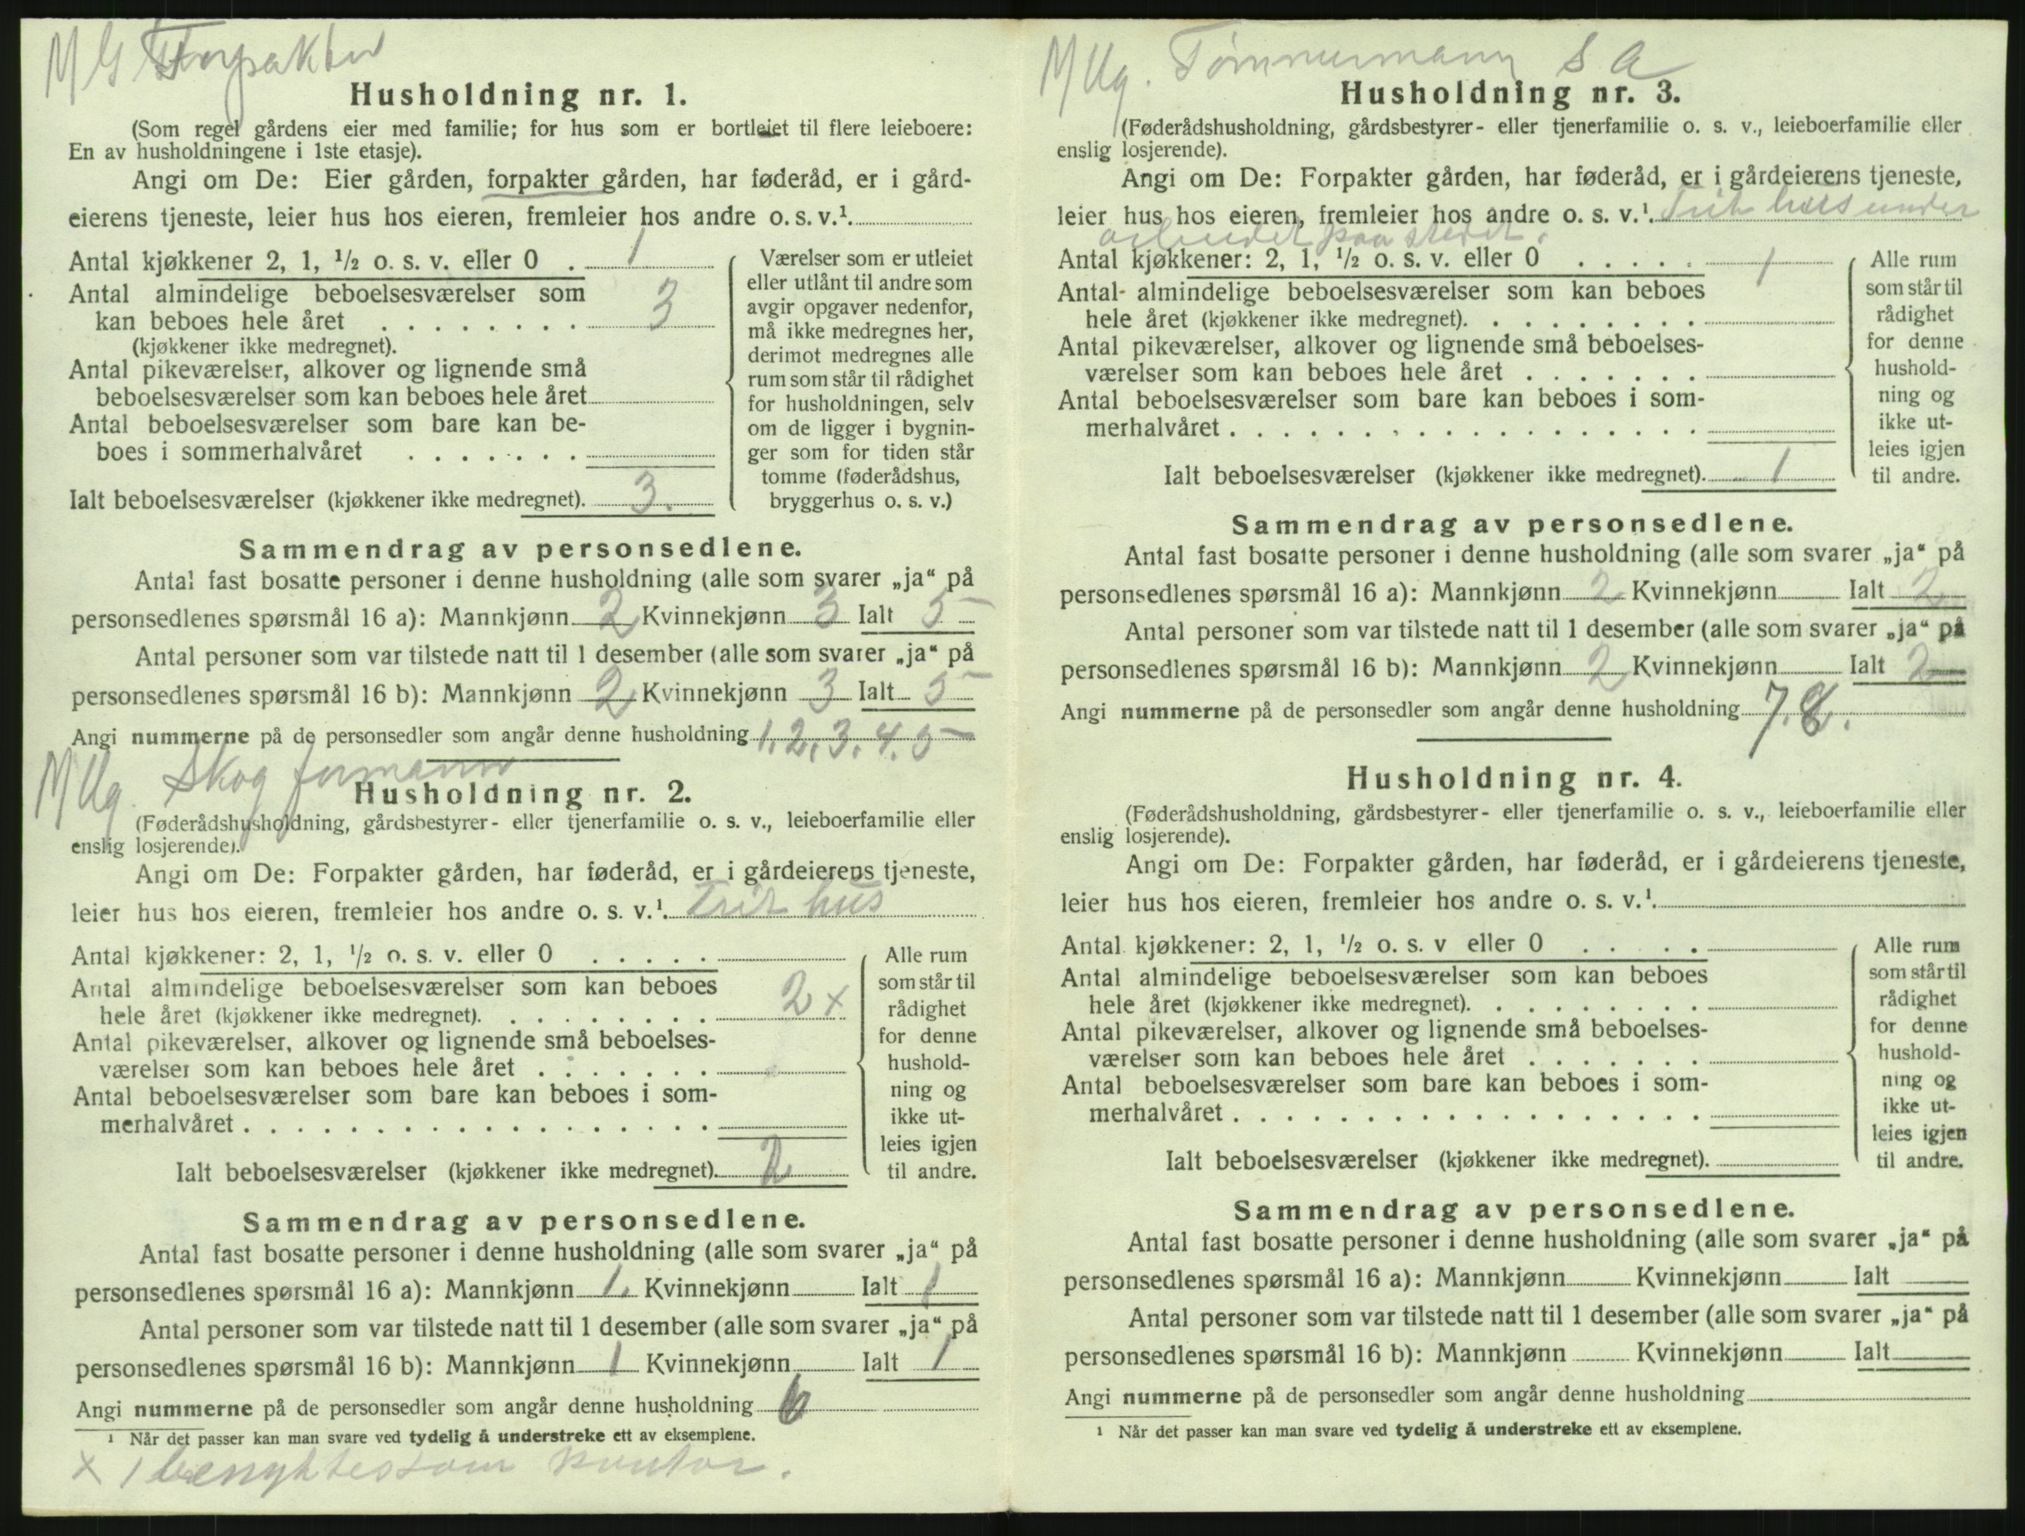 M G Forpakter
Husholdning nr. 1.
(Som regel gårdens eier med familie; for hus som er bortleiet til flere leieboere:
En av husholdningene i 1ste etasje).
Angi om De: Eier gården, forpakter gården, har føderåd, er i gård-
eierens tjeneste, leier hus hos eieren, fremleier hos andre o. s. v.¹.
Antal kjøkkener 2, 1, ½ o. s. v. eller 0 . 1
Antal almindelige beboelsesværelser som
kan beboes hele året . . . . . . . . 3
(kjøkkener ikke medregnet).
Antal pikeværelser, alkover og lignende små
beboelsesværelser som kan beboes hele året
Antal beboelsesværelser som bare kan be-
boes i sommerhalvåret . . . . . . .
Ialt beboelsesværelser (kjøkkener ikke medregnet). 3.
Værelser som er utleiet
eller utlånt til andre som
avgir opgaver nedenfor,
må ikke medregnes her,
derimot medregnes alle
rum som står til rådighet
for husholdningen, selv
om de ligger i bygnin-
ger som for tiden står
tomme (føderådshus,
bryggerhus o. s. v.)
Sammendrag av personsedlene.
Antal fast bosatte personer i denne husholdning (alle som svarer „ja“ på
personsedlenes spørsmål 16 a): Mannkjønn 2 Kvinnekjønn 3 Ialt 5
Antal personer som var tilstede natt til 1 desember (alle som svarer „ja“ på
personsedlenes spørsmål 16 b): Mannkjønn 2 Kvinnekjønn 3 Ialt 5
Angi nummerne på de personsedler som angår denne husholdning 1. 2. 3. 4. 5
M Ug. Skog formann
Husholdning nr. 2.
(Føderådshusholdning, gårdsbestyrer- eller tjenerfamilie o. s. v., leieboerfamilie eller
enslig losjerende).
Angi om De: Forpakter gården, har føderåd, er i gårdeierens tjeneste,
leier hus hos eieren, fremleier hos andre o. s. v.¹. frit hus
Antal kjøkkener: 2, 1, ½ o. s. v. eller 0 . . . . .
Antal almindelige beboelsesværelser som kan beboes
hele året (kjøkkener ikke medregnet). . . . . . . . . 2 x
Antal pikeværelser, alkover og lignende små beboelses-
værelser som kan beboes hele året . . . . . . .
Antal beboelsesværelser som bare kan beboes i som-
merhalvåret . . . . . . . . . . . . . . . . . .
Ialt beboelsesværelser (kjøkkener ikke medregnet). 2
Alle rum
som står til
rådighet
for denne
hushold-
ning og
ikke ut-
leies igjen
til andre.
Sammendrag av personsedlene.
Antal fast bosatte personer i denne husholdning (alle som svarer „ja“ på
personsedlenes spørsmål 16 a): Mannkjønn 1. Kvinnekjønn Ialt 1
Antal personer som var tilstede natt til 1 desember (alle som svarer „ja“ på
personsedlenes spørsmål 16 b): Mannkjønn 1 Kvinnekjønn Ialt 1
Angi nummerne på de personsedler som angår denne husholdning 6
¹ Når det passer kan man svare ved tydelig å understreke ett av eksemplene.
x 1 benyttes som kontor.
M Ug. Tømmermann S A
Husholdning nr. 3.
(Føderådshusholdning, gårdsbestyrer- eller tjenerfamilie o. s. v., leieboerfamilie eller
enslig losjerende).
Angi om De: Forpakter gården, har føderåd, er i gårdeierens tjeneste,
leier hus hos eieren, fremleier hos andre o. s. v.¹. Frit hus under
arbeidet paa stedet.
Antal kjøkkener: 2, 1, ½ o. s. v. eller 0 . . . . . 1
Antal almindelige beboelsesværelser som kan beboes
hele året (kjøkkener ikke medregnet). . . . . . . . .
Antal pikeværelser, alkover og lignende små beboelses-
værelser som kan beboes hele året . . . . . . .
Antal beboelsesværelser som bare kan beboes i som-
merhalvåret . . . . . . . . . . . . . . . . . .
Ialt beboelsesværelser (kjøkkener ikke medregnet). 1
Alle rum
som står til
rådighet
for denne
hushold-
ning og
ikke ut-
leies igjen
til andre.
Sammendrag av personsedlene.
Antal fast bosatte personer i denne husholdning (alle som svarer „ja“ på
personsedlenes spørsmål 16 a): Mannkjønn 2 Kvinnekjønn Ialt 2
Antal personer som var tilstede natt til 1 desember (alle som svarer „ja“ på
personsedlenes spørsmål 16 b): Mannkjønn 2 Kvinnekjønn Ialt 2
Angi nummerne på de personsedler som angår denne husholdning 7. 8.
Husholdning nr. 4.
(Føderådshusholdning, gårdsbestyrer- eller tjenerfamilie o. s. v., leieboerfamilie eller
enslig losjerende).
Angi om De: Forpakter gården, har føderåd, er i gårdeierens tjeneste,
leier hus hos eieren, fremleier hos andre o. s. v.¹.
Antal kjøkkener: 2, 1, ½ o. s. v eller 0 . . . .
Antal almindelige beboelsesværelser som kan beboes
hele året (kjøkkener ikke medregnet). . . . . . . . .
Antal pikeværelser, alkover og lignende små beboelses-
værelser som kan beboes hele året . . . . . . .
Antal beboelsesværelser som bare kan beboes i som-
merhalvåret . . . . . . . . . . . . . . . . . .
Ialt beboelsesværelser (kjøkkener ikke medregnet).
Alle rum
som står til
rådighet
for denne
hushold-
ning og
ikke ut-
leies igjen
til andre.
Sammendrag av personsedlene.
Antal fast bosatte personer i denne husholdning (alle som svarer „ja“ på
personsedlenes spørsmål 16 a): Mannkjønn Kvinnekjønn Ialt
Antal personer som var tilstede natt til 1 desember (alle som svarer „ja“ på
personsedlenes spørsmål 16 b): Mannkjønn Kvinnekjønn Ialt
Angi nummerne på de personsedler som angår denne husholdning
¹ Når det passer kan man svare ved tydelig å understreke ett av eksemplene.